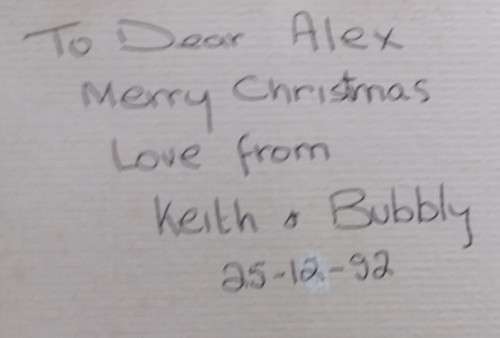 To Dear Alex
Merry Christmas
Love from
Keith & Bubbly
25-12-92